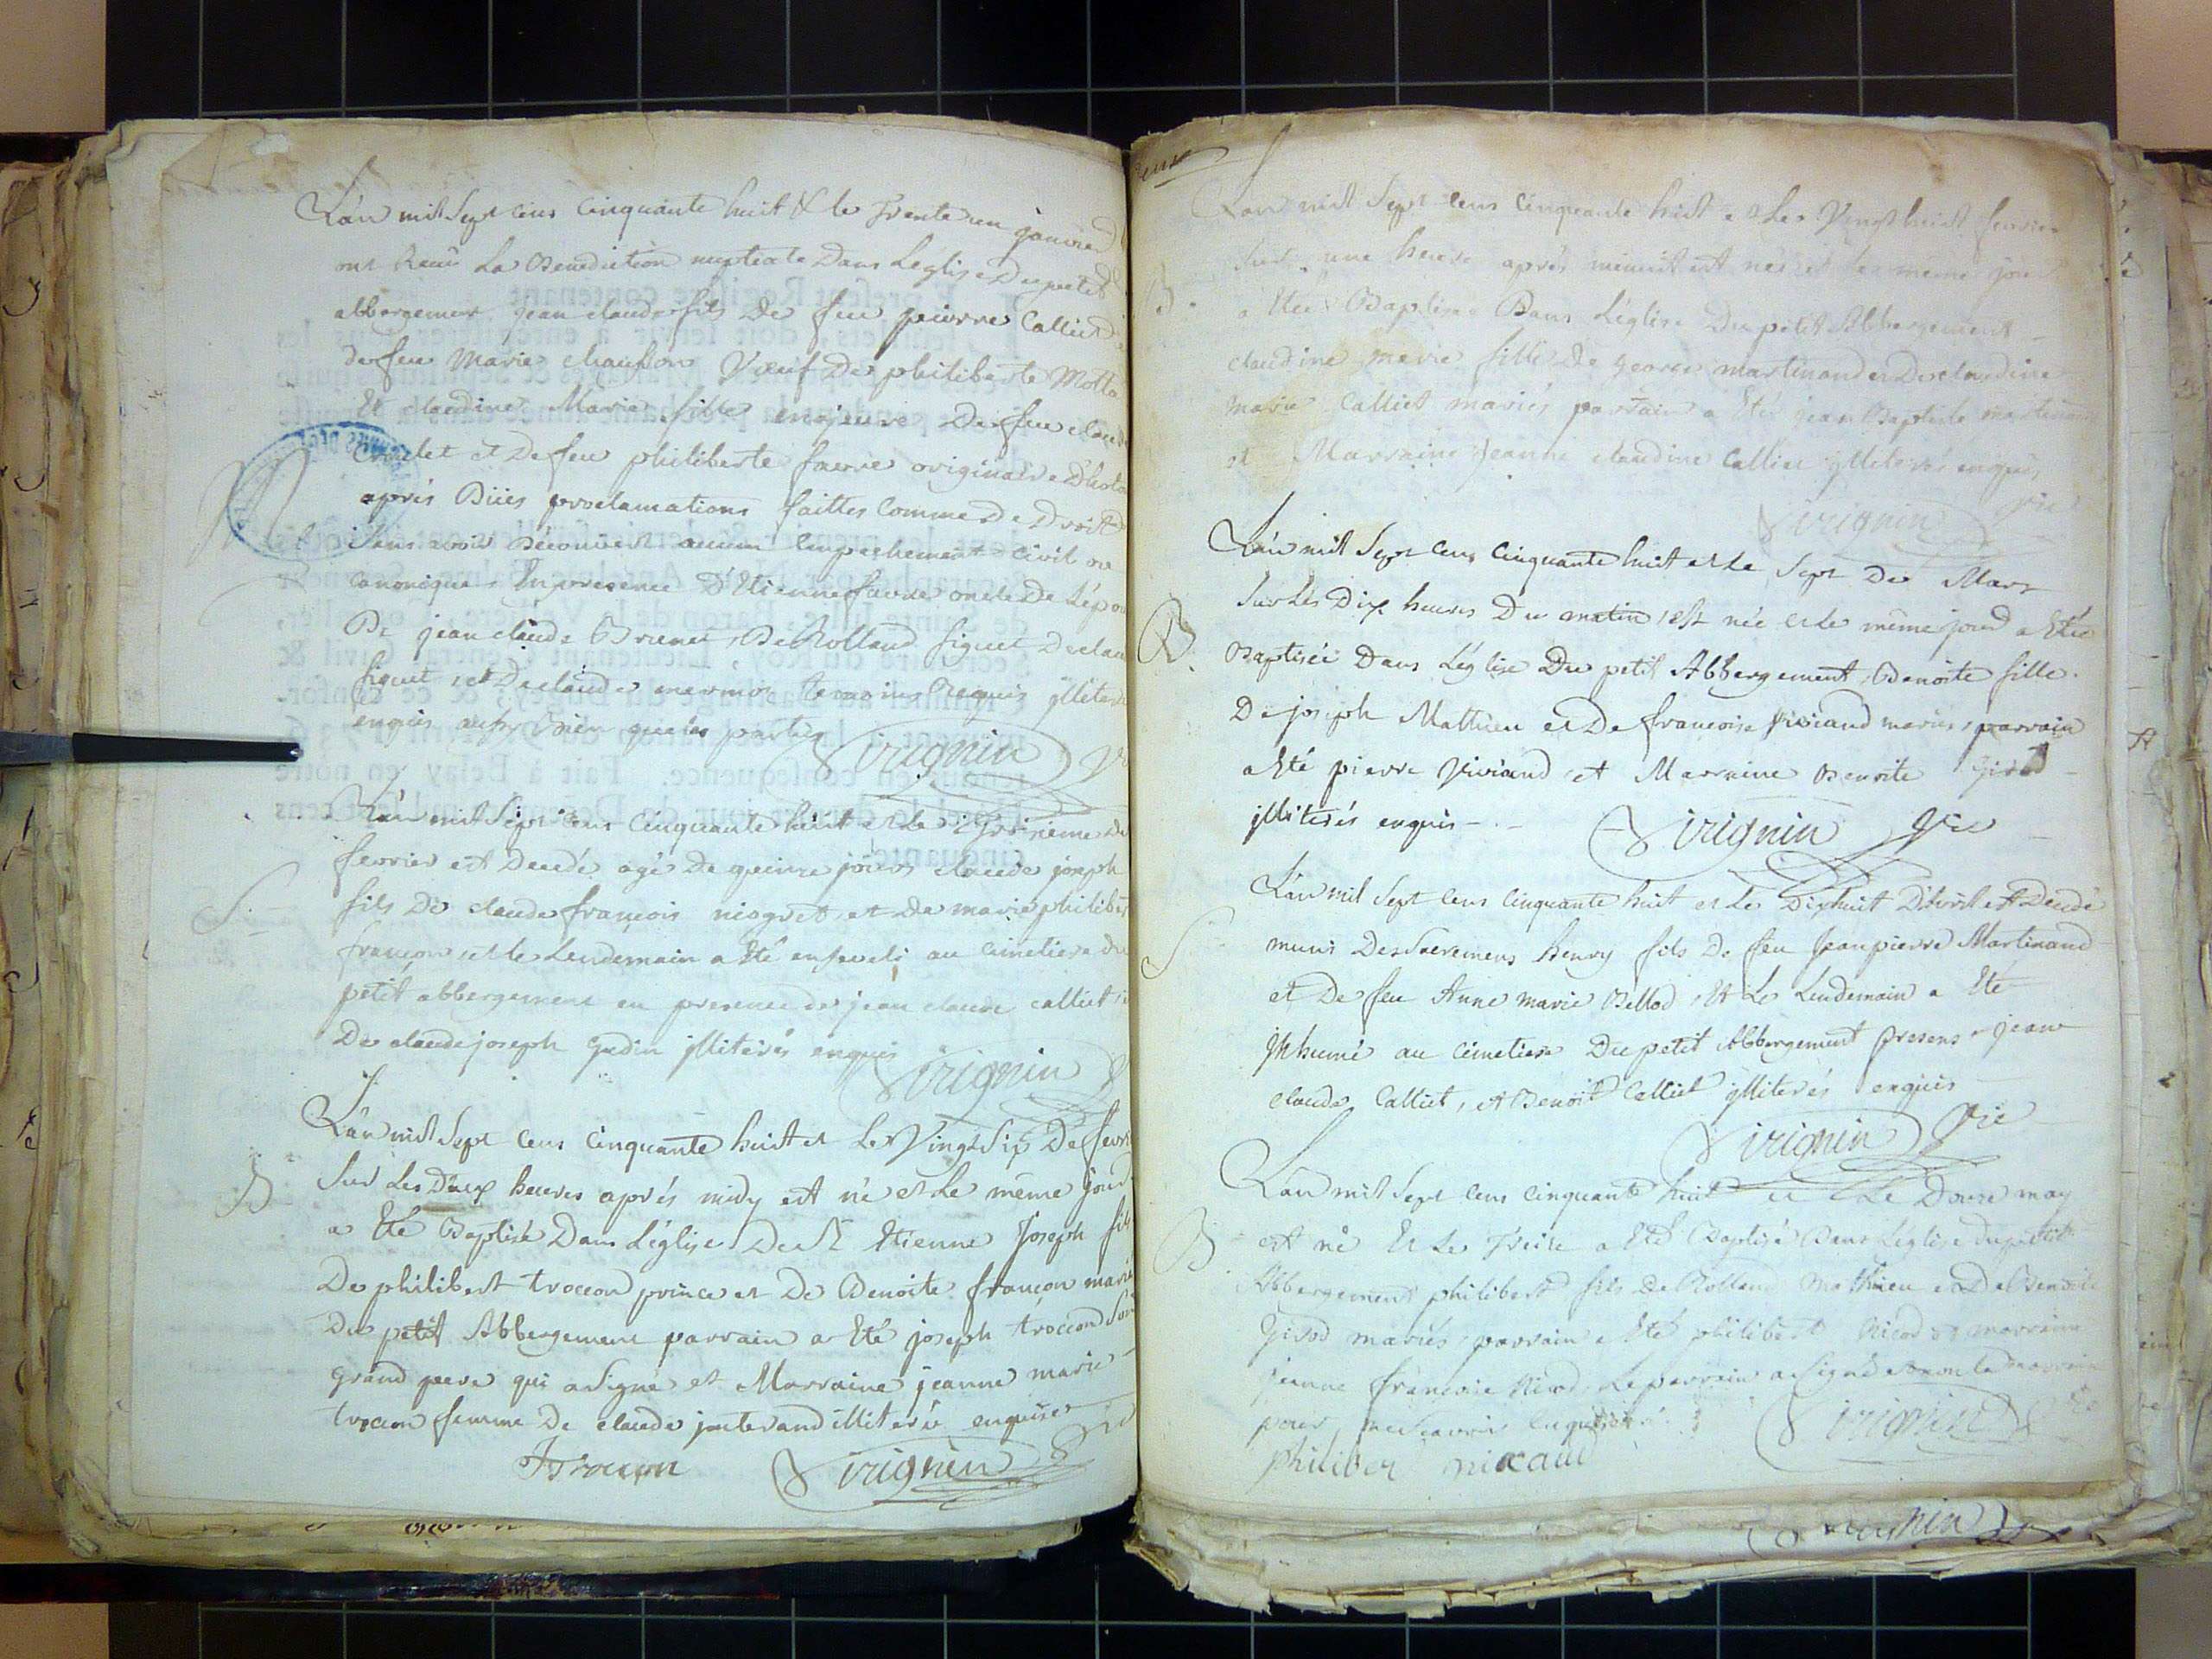 L'an mil sept cens cinquante huit & le trente un janvier
ont Receu La Benediction nuptiale Dans L'eglise Du petit
abbergement jean claude fils De feu pierre Calliet
de feu Marie chausson Veuf De philiberte Motta
Et claudine Marie fille majeure De feu claude
et De feu philiberte favre originaire
aprés Dües proclamations faittes Comme De Droit
sans avoir Découvert aucun Empechement civil ou
canonique, En presence D'Etienne favre oncle De L'épou
De jean claude Brunet, De Rolland Siguet De claude
Siguet, et De claude mermos temoins Requis jlliterés
enquis aussy bien que les parties
Virignin
L'an mil sept cens cinquante huit et le De
fevrier est Decedé agé De quinze jours claude joseph
S.
fils De claude françois niogret et De marie philiberte
françon et le Lendemain a Eté enseveli au cimetiere du
petit abbergement en presence de jean claude calliet
De claude joseph Gudin jlliterés enquis
Virignin
L'an mil sept cens cinquante huit et Le Vingt Six De fevrier
B
Sur Les Deux heures aprés midy est né et Le même jour
a Eté Baptisé Dans L'église De St Etienne Joseph fils
De philibert troccon prince et De Benoite françon mariés
Du petit Abbergement parrain a Eté joseph troccon Son
grand pere qui a Signé et Marraine jeanne marie
troccon femme De claude jnterand illiterée enquise
JTroccon Virignin
L'an mil Sept cens Cinquante huit et Le Vingt huit fevrier
Sur une heure aprés minuit est née et le même jour
B.
a Eteé Baptisée Dans L'église Du petit Abbergement
claudine marie fille De George martinand et De claudine
marie Calliet mariés parrain a Eté jean Baptiste martinand
et Marraine Jeanne claudine Calliet jlliterés enquis
Virignin vic
L'an mil Sept cens Cinquante huit et Le Sept De Mars
Sur Les Dix heures Du matin est née et le même jour a Eté
B.
Baptisée Dans L'église Du petit Abbergement, Benoite fille
De joseph Mathieu et De françoise Viviand mariés, parrain
a Eté pierre Viviand et Marraine Benoite Girod
jlliterés enquis -.- Virignin Vic
L'an mil Sept cens Cinquante huit et Le Dixhuit D'avril est Decedé
S
muni Des Sacremens henry fils De feu Jeanpierre Martinand
et De feu Anne marie Bellod, Et Le Lendemain a Eté
jnhumé au cimetiere Du petit Abbergement presens jean
claude Calliet, et Benoit Calliet jlliterés enquis
Virignin Vic
L'an mil Sept cens cinquante huit et Le Douze may
B
est né Et Le Treize a Eté Baptisé Dans L'église du petit
Abbergement philibert fils De Rolland Mathieu et De Benoite
Girod mariés, parrain a Eté philibert Nicod et marraine
jeanne françoise Nicod, Le parrain a Signé et non la marraine
pour ne Scavoir enquise
Virignin
philiber nicaud